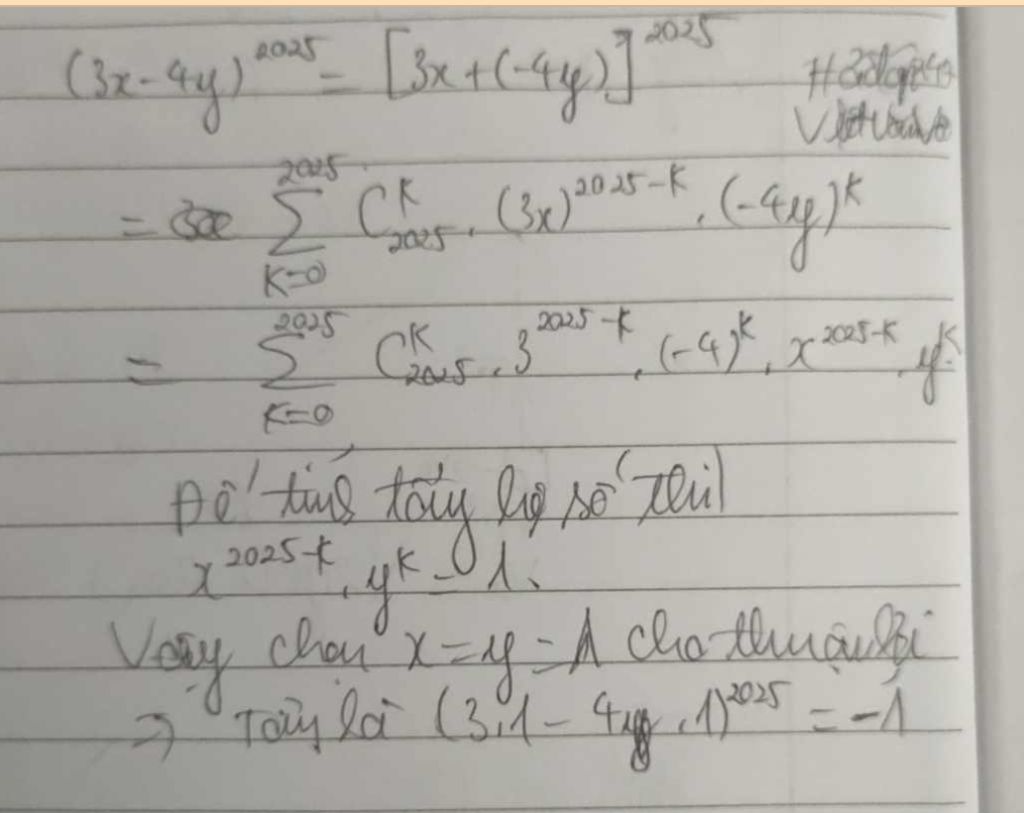 (3x-4y)^2025 = [3x+(-4y)]^2025
= ∑_{K=0}^{2025} C_{2025}^K . (3x)^{2025-K} . (-4y)^K
= ∑_{K=0}^{2025} C_{2025}^K . 3^{2025-K} . (-4)^K . x^{2025-K} . y^K
Để tính tổng hệ số thì
x^{2025-K} . y^K = 1.
Vậy chọn x=y=1 cho thuận lợi
=> Tổng là (3.1 - 4 . 1)^2025 = -1